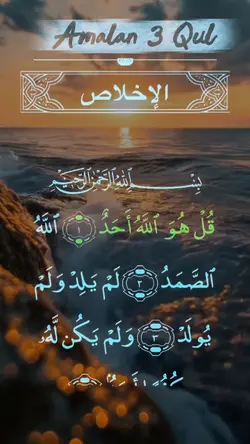 Amalan 3 Qul
الإخلاص
بِسْمِ ٱللَّهِ ٱلرَّحْمَٰنِ ٱلرَّحِيمِ
قُلْ هُوَ ٱللَّهُ أَحَدٌ ١ ٱللَّهُ
ٱلصَّمَدُ ٢ لَمْ يَلِدْ وَلَمْ
يُولَدْ ٣ وَلَمْ يَكُن لَّهُۥ